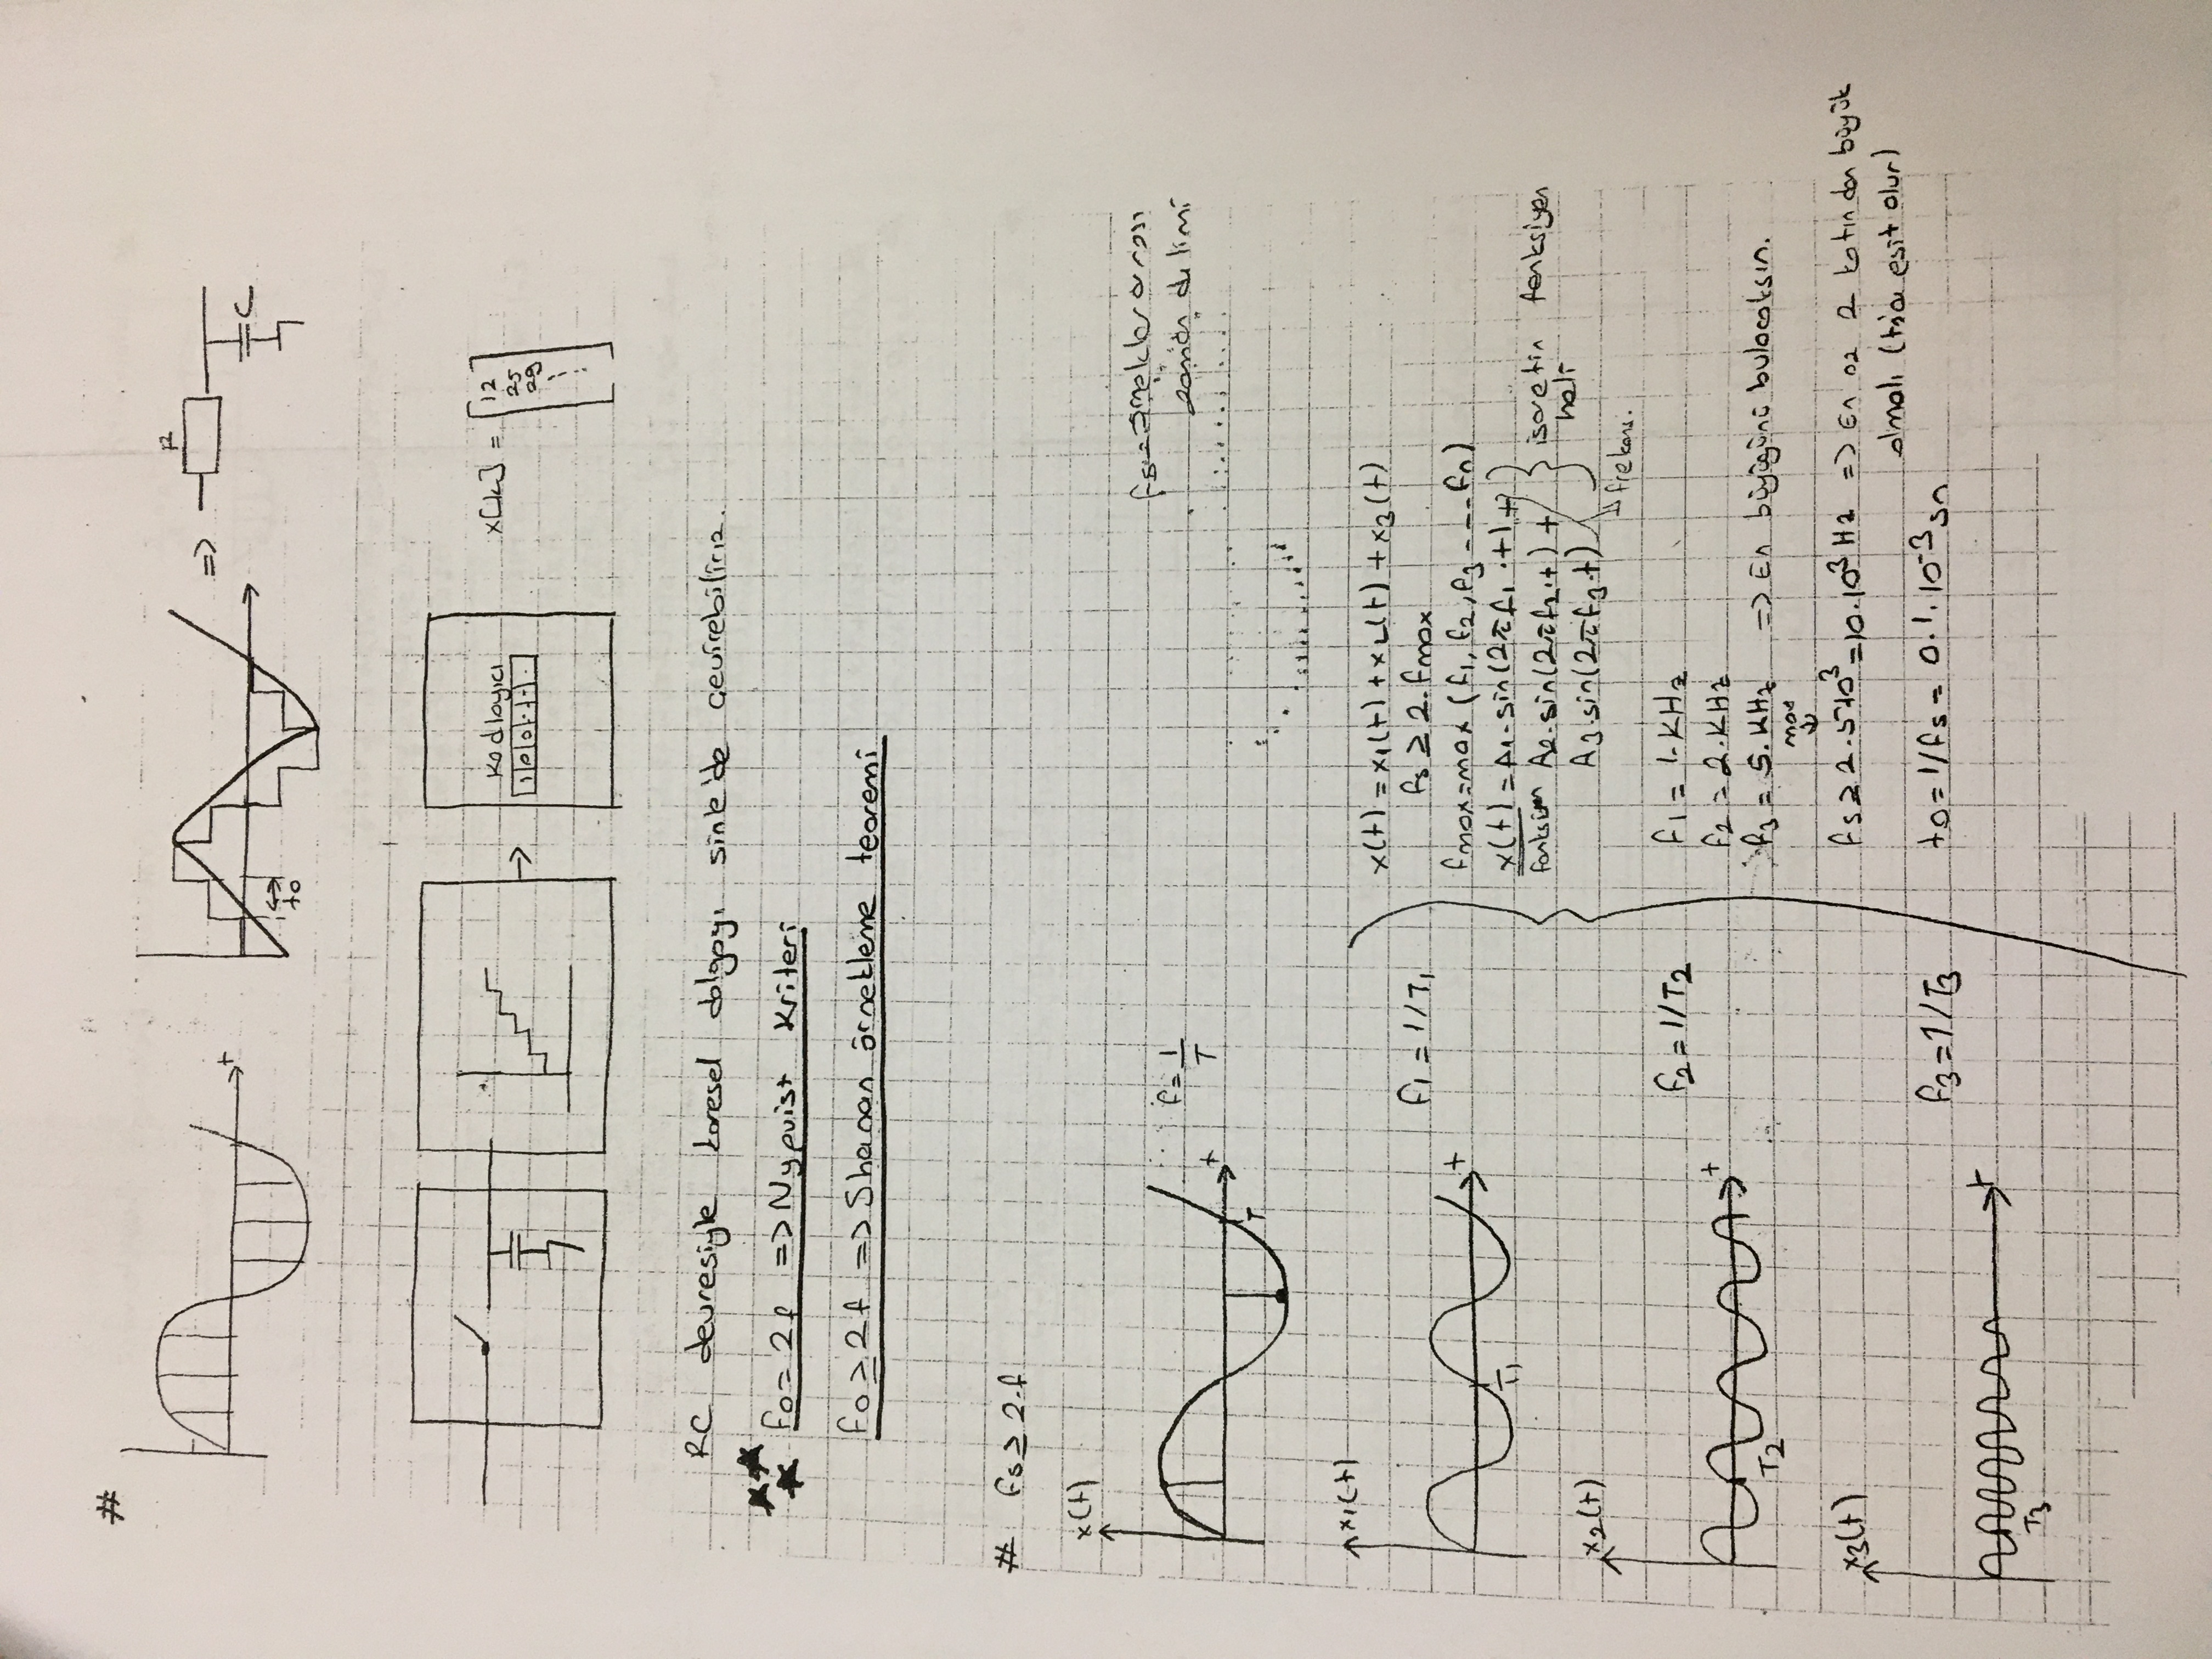 #
t
to
=> R
C
Kodlayıcı
1 0 0
x[k] = [12
25
29
RC devresiyle karesel dalgayı sinüs'de çevirebiliriz.
fo = 2f => Nyquist Kriteri
fo ≥ 2f => Shanan örnekleme teoremi
# fs ≥ 2.f
x(t)
t
T
f = 1/T
fs => örnekler arası
zaman dilimi
x1(t)
t
T1
f1 = 1/T1
x2(t)
t
T2
f2 = 1/T2
x3(t)
t
T3
f3 = 1/T3
x(t) = x1(t) + x2(t) + x3(t)
fs ≥ 2.fmax
fmax = max (f1, f2, f3 ---- fn)
x(t) = A1.sin(2πf1.t) +
fonksiyon A2.sin(2πf2.t) +
A3.sin(2πf3.t)
işaretin fonksiyon
hali
frekans.
f1 = 1.KHz
f2 = 2.KHz
f3 = 5.KHz => En büyüğünü bulacaksın.
max
fs ≥ 2.5.10³ = 10.10³ Hz => En az 2 katından büyük
olmalı ( eşit olur)
to = 1/fs = 0.1.10⁻³ sn